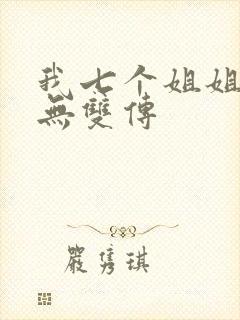 我七个姐姐
無雙傳
嚴隽琪